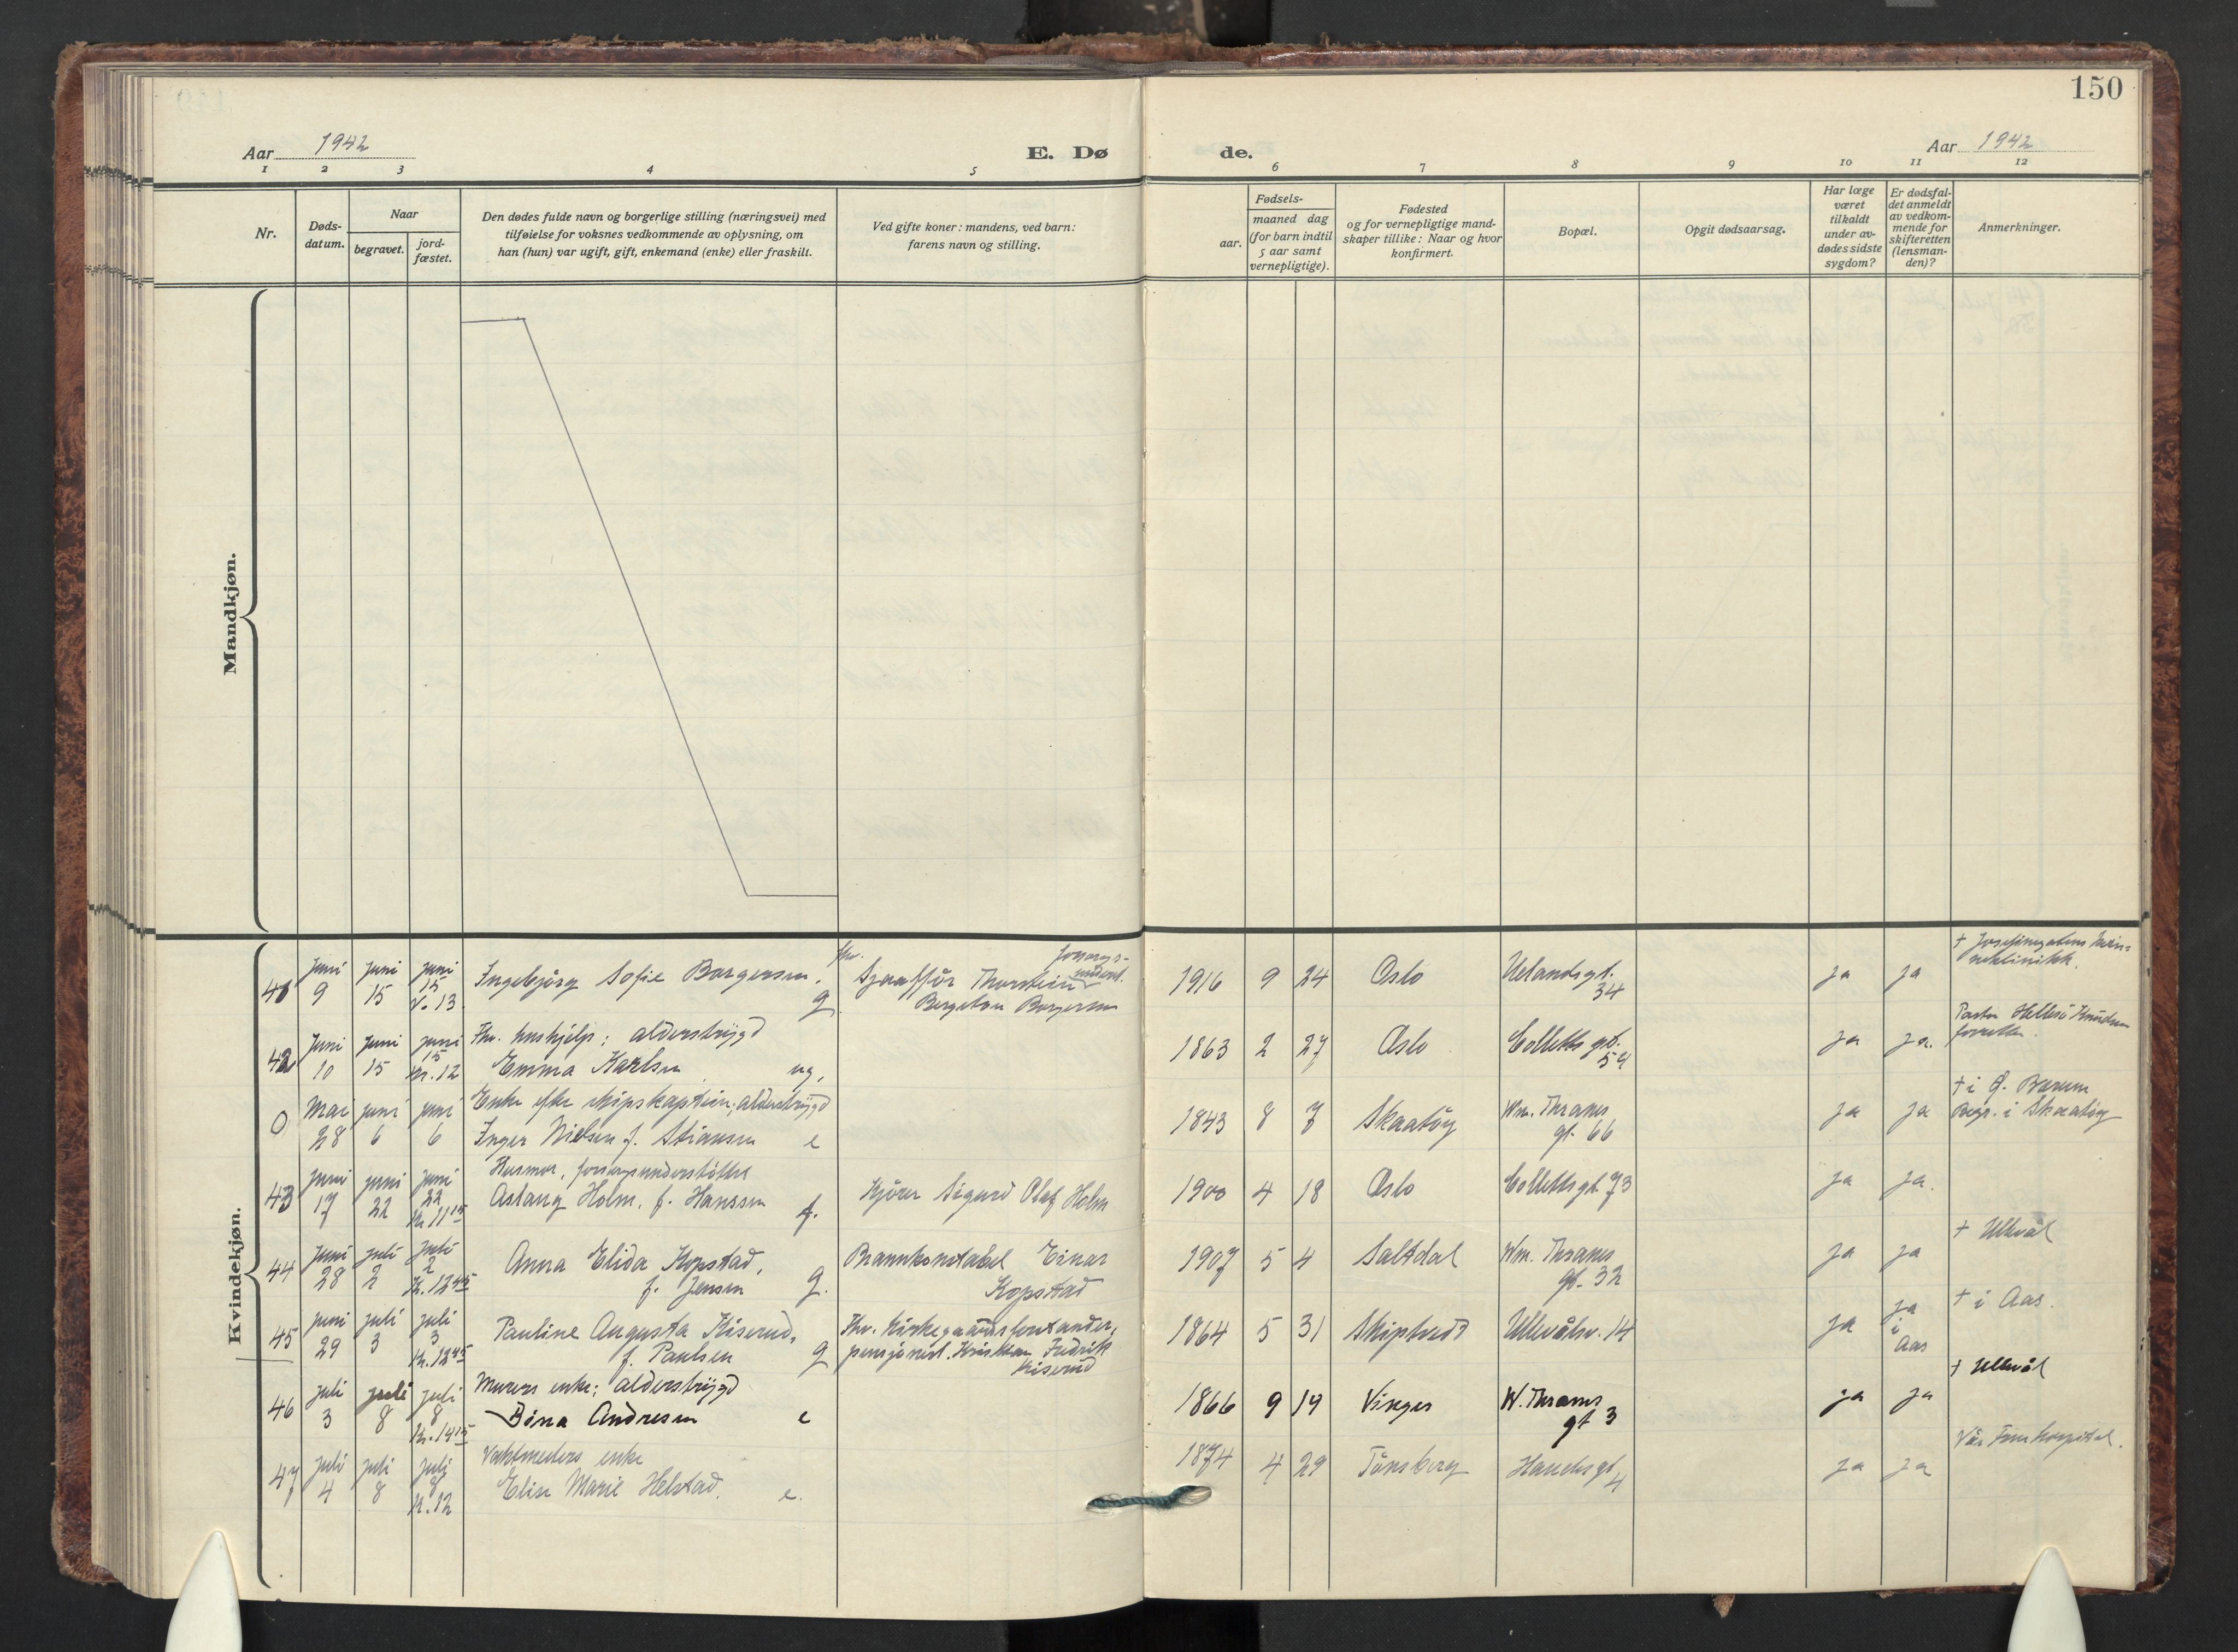 150
Aar 1942
E. Dø
de.
Aar 1942
1 2 3 4 5 6 7 8 9 10 11 12
Nr.
Døds-
datum.
Naar
begravet.
jord-
fæstet.
Den dødes fulde navn og borgerlige stilling (næringsvei) med
tilføielse for voksnes vedkommende av oplysning, om
han (hun) var ugift, gift, enkemand (enke) eller fraskilt.
Ved gifte koner: mandens, ved barn:
farens navn og stilling.
aar.
Fødsels-
maaned dag
(for barn indtil
5 aar samt
vernepligtige).
Fødested
og for vernepligtige mand-
skaper tillike: Naar og hvor
konfirmert.
Bopæl.
Opgit dødsaarsag.
Har læge
været
tilkaldt
under av-
dødes sidste
sygdom?
Er dødsfal-
det anmeldt
av vedkom-
mende for
skifteretten
(lensman-
den)?
Anmerkninger.
Mandkjøn.
Kvindekjøn.
41 juni 9 juni 15 juni 15 13
Ingebjørg Sofie Borgersen, g.
fhv. forsorgs-
underst.
Sjaaffør Thorstein
Bergeton Borgersen
1916 9 24 Oslo Uelandsgt.
34
ja ja
† Josefinegatens
42 juni 10 juni 15 juni 15 kl. 12
Fhv. hushjelp; alderstrygd
Emma Karlsen ug.
1863 2 27 Oslo Colletts gt.
54
ja ja.
Pastor Knudsen
forretter.
0 Mai 28 juni 6 juni 6
Enke efter skipskaptein; alderstrygd
Inger Nielsen f. Stiansen e
1843 8 7 Skaatøy Wm. Thranes
gt. 66
ja ja
† i Ø. Bærum
Begr. i Skaatøy
43 juni 17 juni 22 juni 22 kl. 11 15
Husmor, forsorgsunderstøttet
Aslaug Holm, f. Hanssen f.
Kjører Sigurd Olaf Holm
1900 4 18 Oslo Collettsgt. 73
ja ja.
44 juni 28 juli 2 juli 2 kl. 12 45
Anna Elida Kopstad,
f. Jensen g.
Brannkonstabel Einar
Kopstad
1907 5 4 Saltdal Wm. Thranes
gt. 32
ja ja
† Ullevål
45 juni 29 juli 3 juli 3 kl. 12 45
Pauline Augusta Kiserud,
f. Paulsen g
Fhv. Kirkegaardsforstander,
pensjonert. Kristian Fredrik
Kiserud
1864 5 31 Skiptvedt Ullevålsv. 14
ja ja
i
Aas
† i Aas.
46 juli 3 juli 8 juli 8 kl. 14 15
Murers enke; alderstrygd
Bina Andresen e
1866 9 19 Vinger W. Thranes
gt 3
ja ja
† Ullevål
47 juli 4 juli 8 juli 8 kl. 12
Vaktmesters enke
Elise Marie Helstad. e.
1874 4 29 Tønsberg Hauchsgt
4
ja ja
Vår Frue hospital.